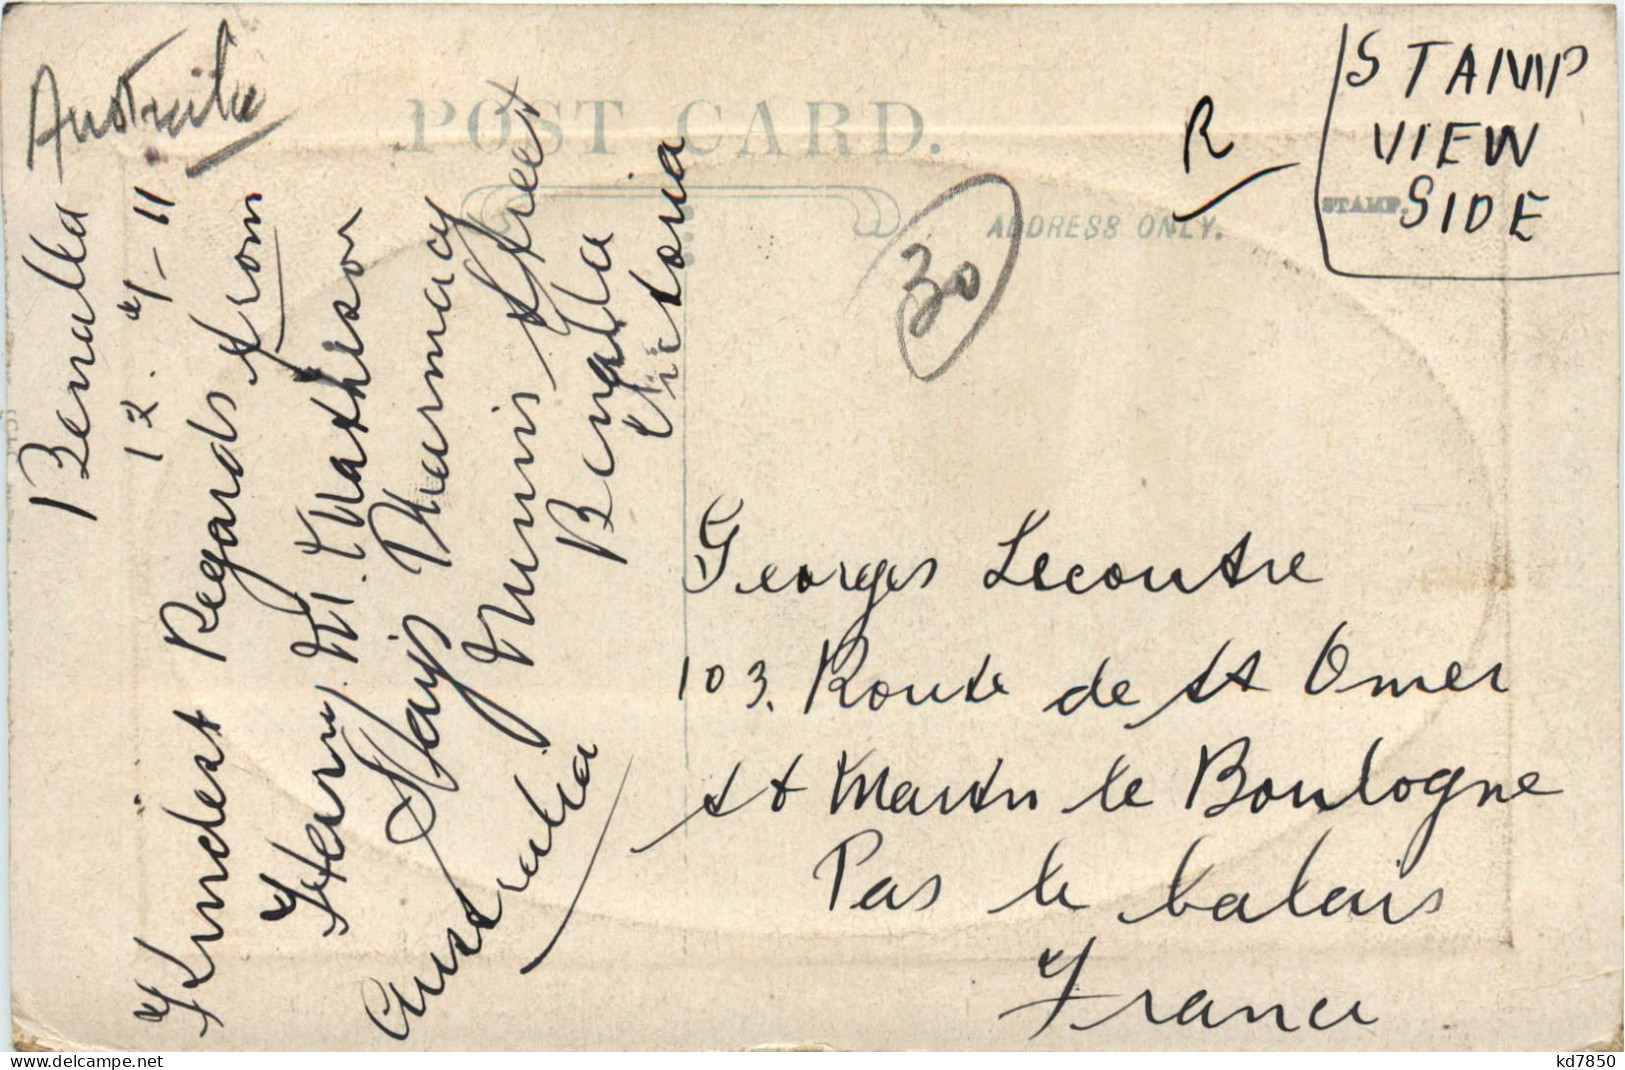 Australia
Benalla
12.4-11
Kindest Regards from
Henry M. Matheson
Hays Pharmacy
Nunn Street
Benalla
Victoria
Australia
POST CARD.
ADDRESS ONLY.
30
R
STAMP
VIEW
SIDE
STAMP.
Georges Lecoutre
103. Route de St Omer
St Martin le Boulogne
Pas le Calais
France
www.delcampe.net
kd7850